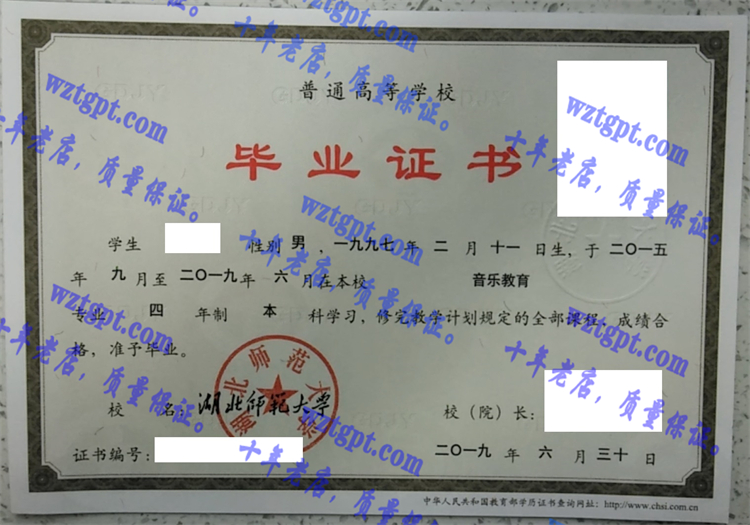 普通高等学校
毕业证书
学生 性别 男 ，一九九七 年 二 月 十一 日生，于 二〇一五
年 九 月至 二〇一九 年 六 月在本校 音乐教育
专业 四 年制 本 科学习，修完教学计划规定的全部课程，成绩合
格，准予毕业。
湖北师范大学
校 名：湖北师范大学 校（院）长：
证书编号： 二〇一九 年 六 月 三十 日
中华人民共和国教育部学历证书查询网址：http://www.chsi.com.cn
wztgpt.com
十年老店，质量保证。
wztgpt.com
十年老店，质量保证。
wztgpt.com
十年老店，质量保证。
wztgpt.com
十年老店，质量保证。
wztgpt.com
十年老店，质量保证。
wztgpt.com
十年老店，质量保证。
wztgpt.com
十年老店，质量保证。
wztgpt.com
十年老店，质量保证。